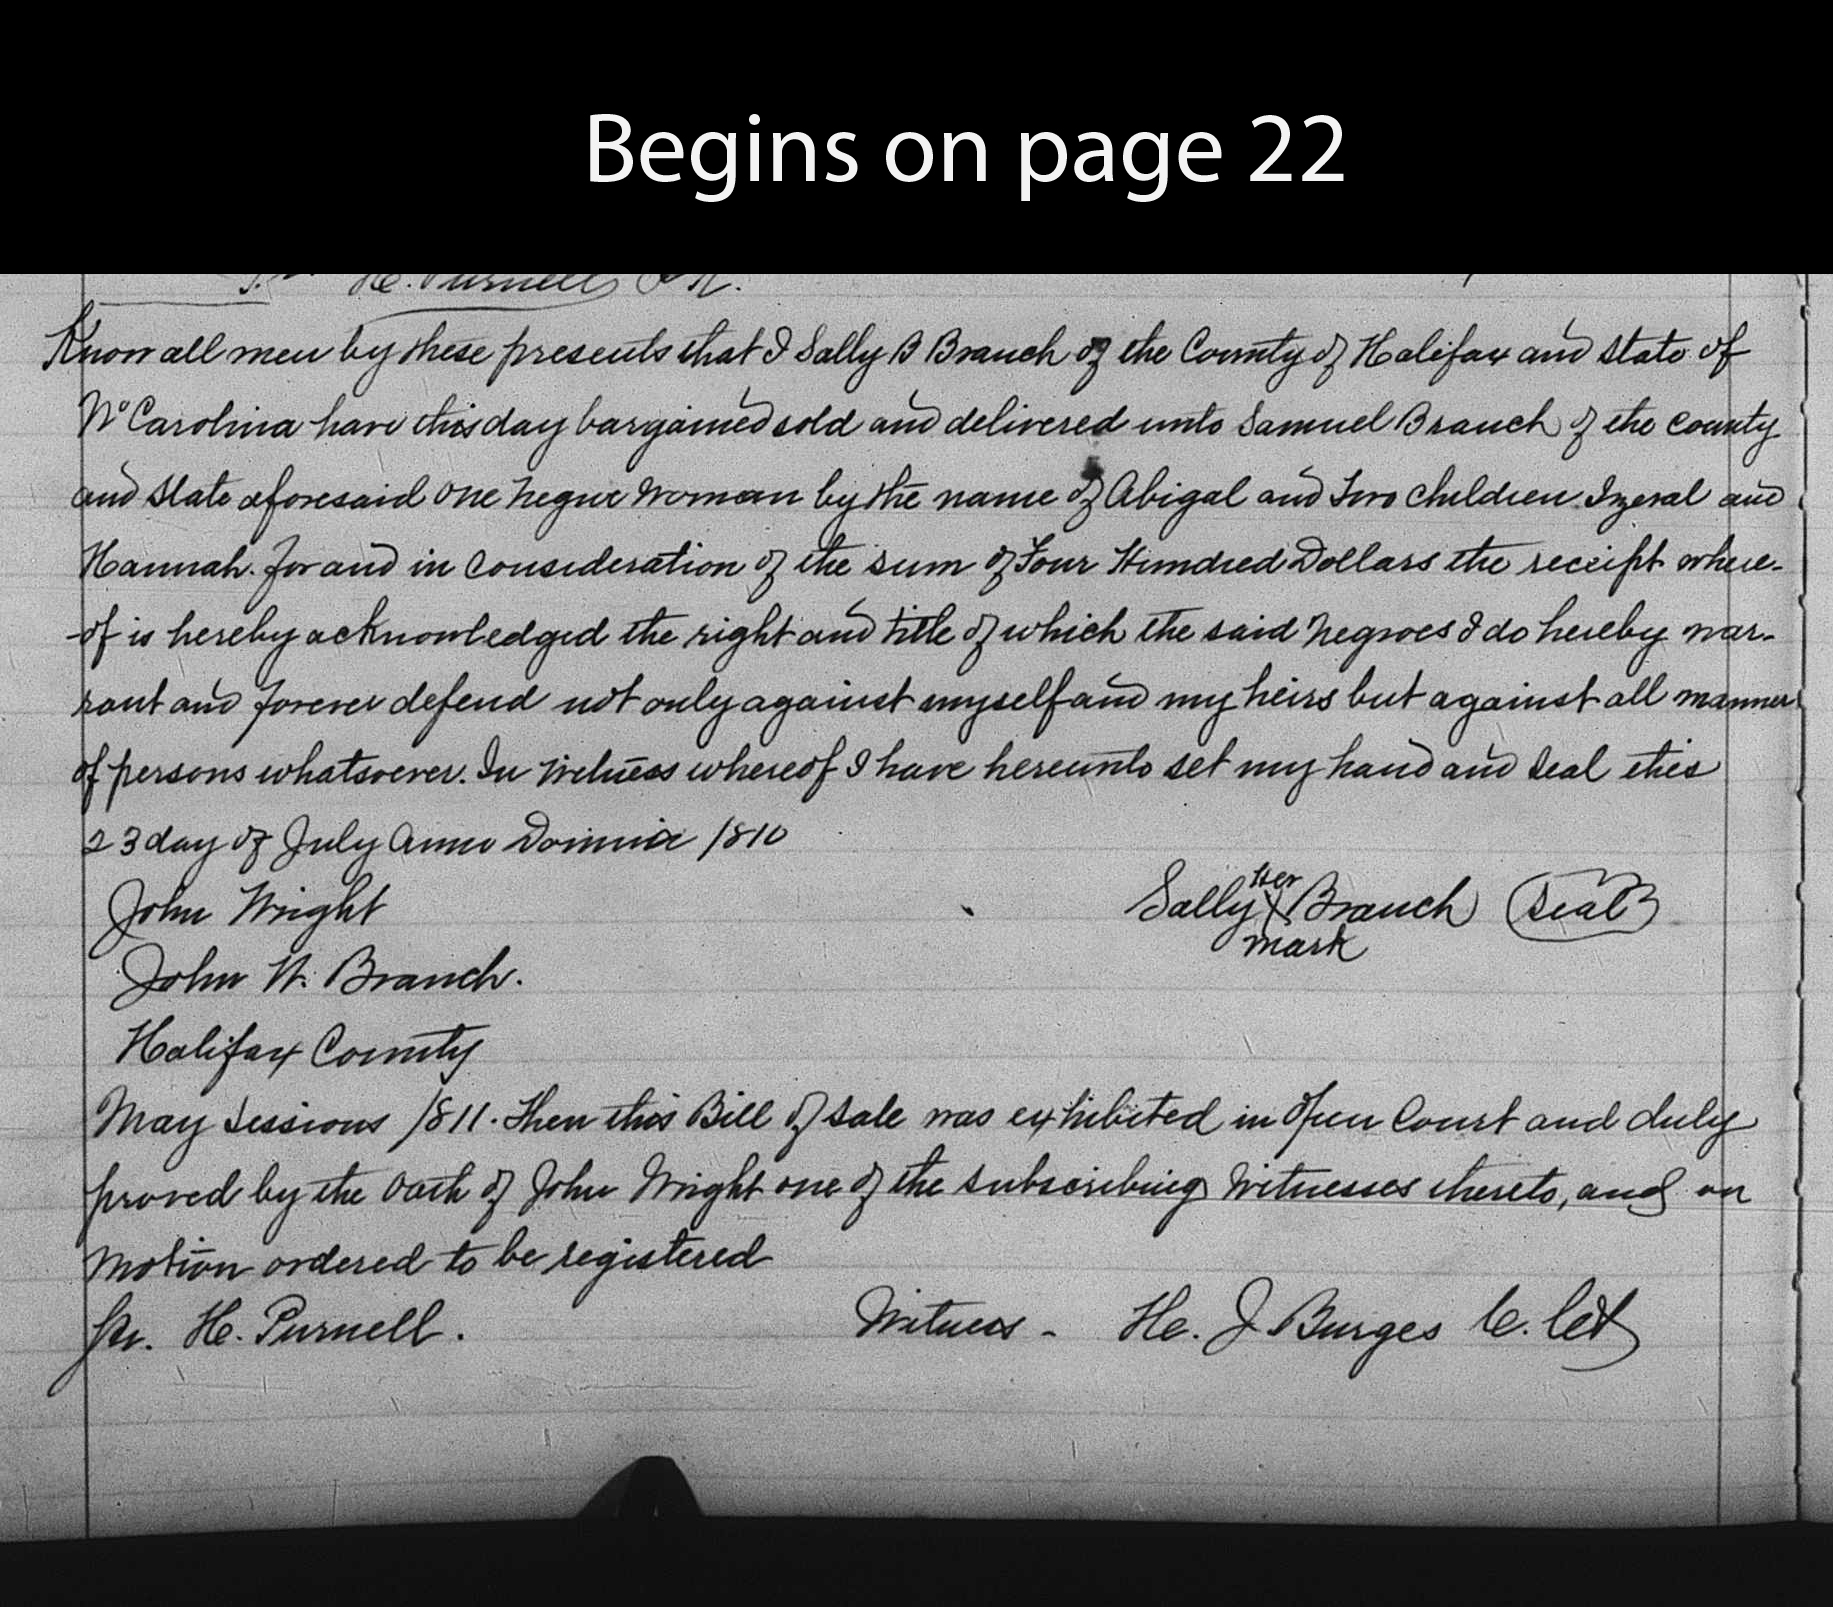 Begins on page 22
H. Purnell
Know all men by these presents that I Sally B Branch of the County of Halifax and State of
No Carolina have this day bargained sold and delivered unto Samuel Branch of the County
and State aforesaid one negro woman by the name of Abigal and Two Children Izeral and
Hannah. for and in consideration of the sum of Four Hundred Dollars the receipt where-
-of is hereby acknowledged the right and title of which the said negroes I do hereby war-
rant and forever defend not only against myself and my heirs but against all manner
of persons whatsoever. In Witness whereof I have hereunto set my hand and seal this
23 day of July Anno Domini 1810
John Wright
her
Sally X Branch (Seal)
mark
John W. Branch.
Halifax County
May Sessions 1811. Then this Bill of Sale was exhibited in Open Court and duly
proved by the Oath of John Wright one of the subscribing Witnesses thereto, and on
Motion ordered to be registered
Pr. H. Purnell. Witness - H. J. Burges C. Ct